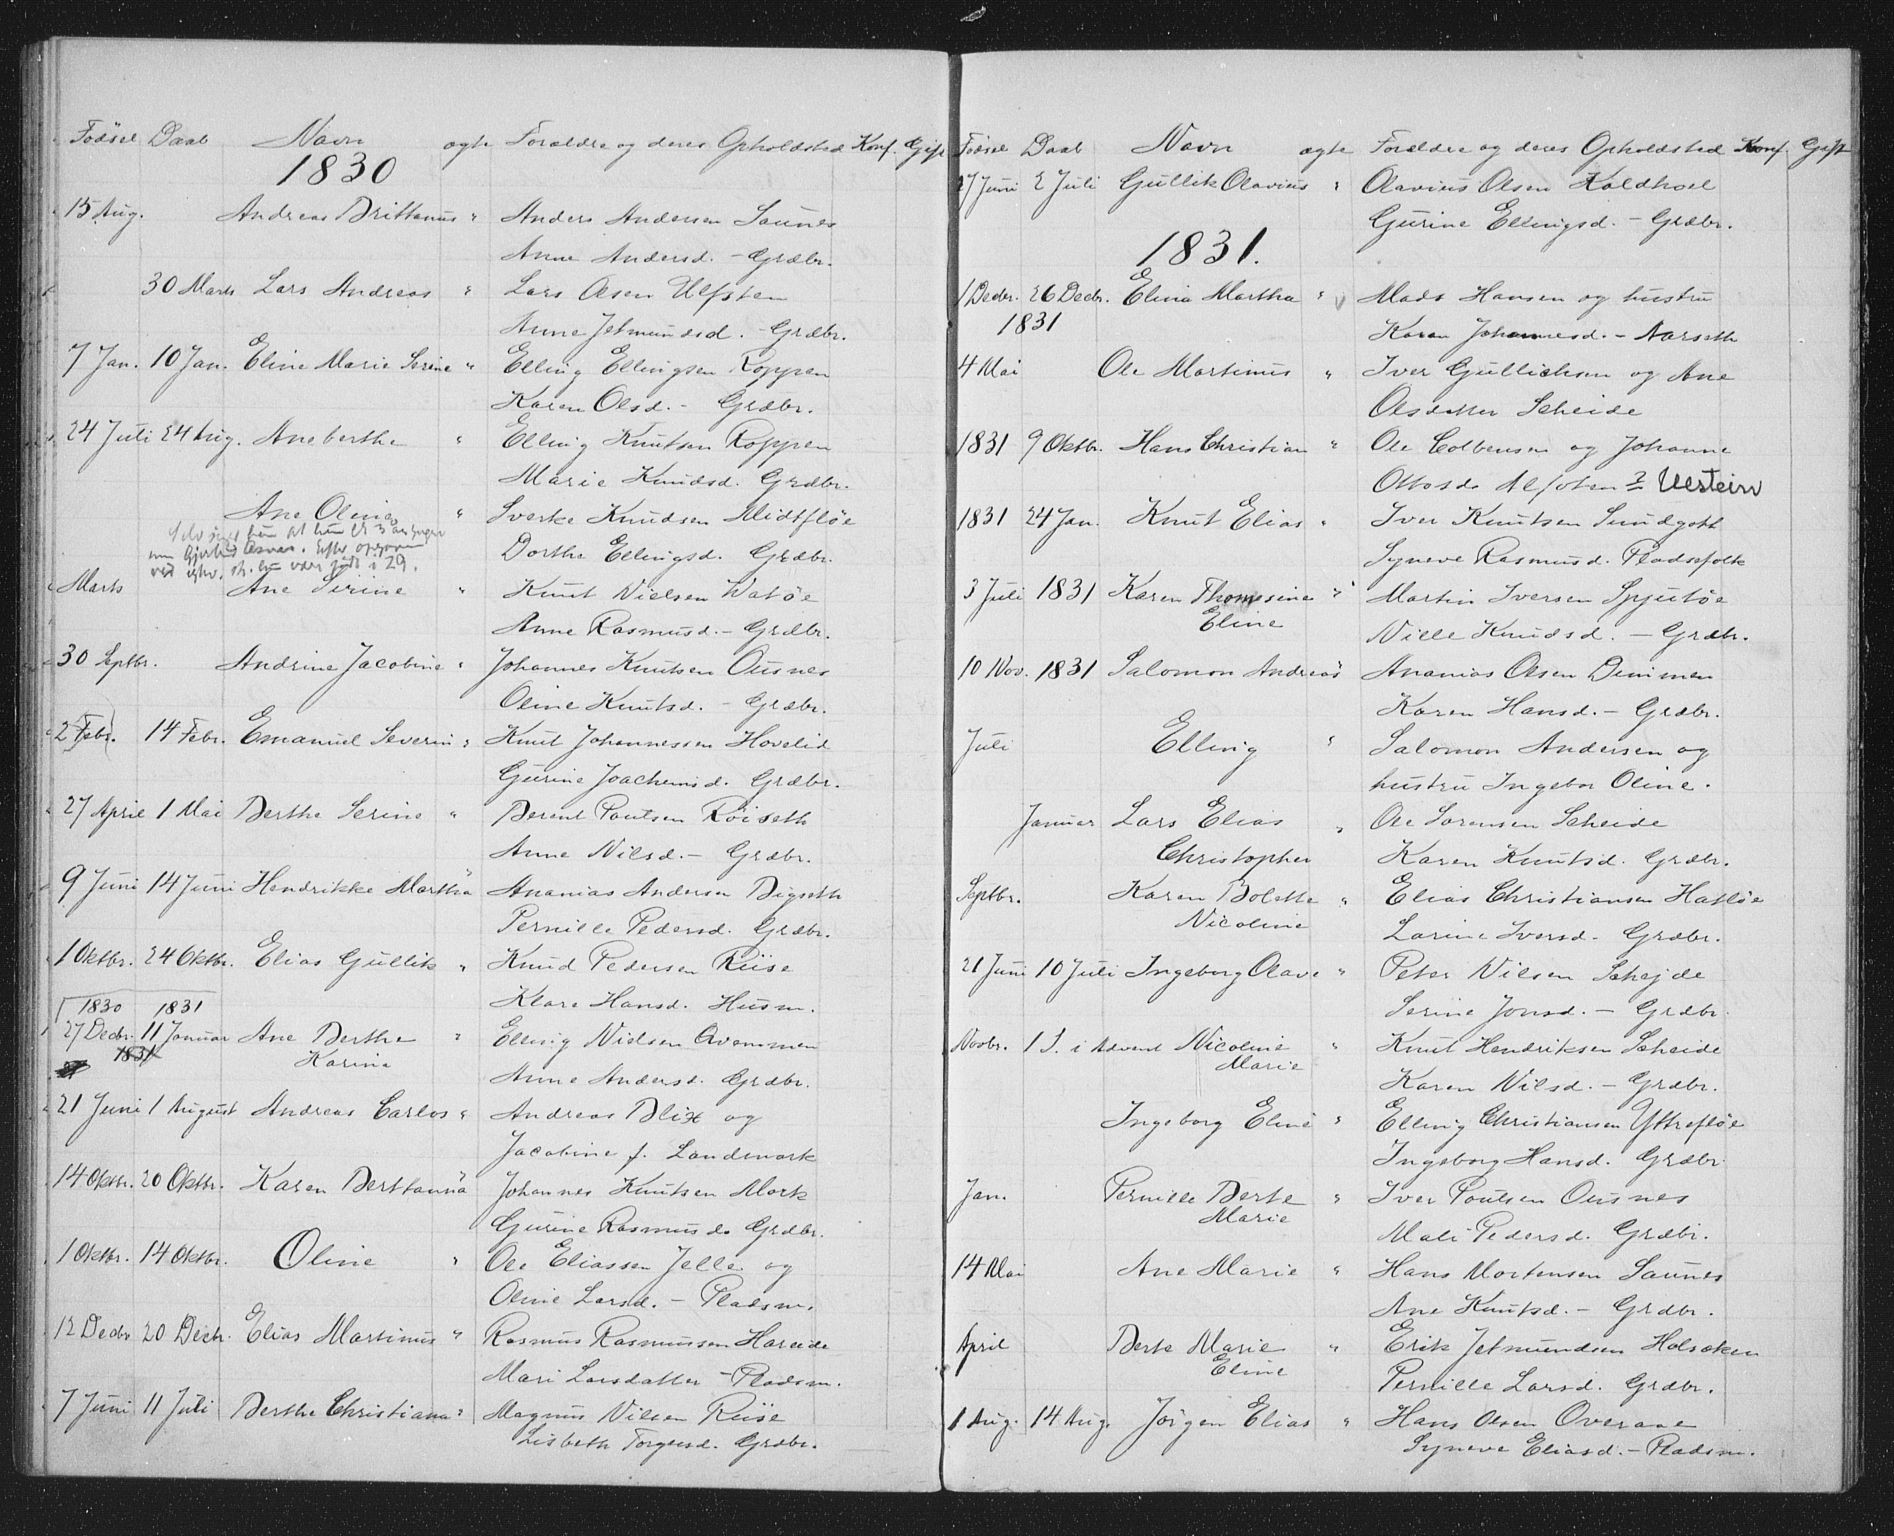 Fødsel Daab Navn ægte Forældre og deres Opholdsted Konf. Gift
1830
15 Aug. Andreas Brittanus " Anders Andersen Saunes
Anne Andersd. - Grdbr.
30 Marts Lars Andreas " Lars Olsen Ulfsten
Anne Jetmundsd. - Grdbr.
7 Jan. 10 Jan. Eline Marie Serine " Elling Ellingsen Roppen
Karen Olsd. - Grdbr.
24 Juli 24 Aug. Aneberthe " Elling Knutsen Roppen
Marie Knudsd. Grdbr.
Ane Oline " Sverke Knudsen Midtfløe
Selv siger hun at hun er 3 aar yngre
Dorthe Ellingsd. Grdbr.
Marts Ane Serine " Knut Nielsen Watøe
Anne Rasmusd. - Grdbr.
30 Septbr. Andrine Jacobine " Johannes Knutsen Ousnes
Oline Knutsd. - Grdbr.
2 Febr. 14 Febr. Emanuel Severin " Knut Johannessen Hovelid
Gurine Joachemsd. Grdbr.
27 April 1 Mai Berthe Serine " Berent Poulsen Röiseth
Anne Nilsd. - Grdbr.
9 Juni 14 Juni Hendrikke Martha " Ananias Andersen Bigseth
Pernille Pedersd. Grdbr.
1 Oktbr. 24 Oktbr. Elias Gullik " Knud Pedersen Riise
Klare Hansd. Husm.
1830 1831
27 Decbr. 11 Januar Ane Berthe " Elling Nielsen Overmmen
1831 Karine
Anne Andersd. Grdbr.
21 Juni 1 August Andreas Carlos " Andreas Blix og
Jacobine f. Landmark
14 Oktbr. 20 Oktbr. Karen Berthanna " Johannes Knutsen Mork
Gurine Rasmusd. Grdbr.
1 Oktbr. 14 Oktbr. Oline " Ole Eliassen Jelle og
Oline Larsd. - Pladsm.
12 Decbr 20 Decbr. Elias Martinus " Rasmus Rasmussen Hareide
Mari Larsdatter - Pladsm.
7 Juni 11 Juli Berthe Christiana " Magnus Nilsen Riise
Lisbeth Torgersd. Grdbr.
Fødsel Daab Navn ægte Forældre og deres Opholdsted Konf. Gift
27 Juni 2 Juli Gullik Olavius " Olavius Olsen Koldhoel
Gurine Ellingsd. - Grdbr.
1831.
1 Decbr. 26 Decbr. Elina Martha " Mads Hansen og hustru
1831 Karen Johannesd. - Aarseth
4 Mai Ole Martinus " Iver Gullichsen og Ane
Olsdatter Scheide
1831 9 Oktbr. Hans Christian " Ole Colbensen og Johanne
Ottosd. Ulstein
1831 24 Jan. Knut Elias " Iver Knutsen Sundgott
Synneve Rasmusd. Pladsfolk
3 Juli 1831 Karen Thomsine " Martin Iversen Spjutøe
Eline
Nille Knudsd. - Grdbr.
10 Nov. 1831 Salomon Andreas " Ananias Olsen Dimmen
Karen Hansd. - Grdbr.
Juli Elling " Salomon Andersen og
hustru Ingebor Oline.
Januar Lars Elias " Ole Sorensen Scheide
Christopher Karen Knutsd. Grdbr.
Septbr. Karen Bolette " Elias Christiansen Hatløe
Nicoline
Larine Iversd. Grdbr.
21 Juni 10 Juli Ingeborg Olave " Peter Nilsen Schejde
Serine Jonsd. - Grdbr.
Novbr. 1 S. i Advent Nicoline " Knut Hendriksen Scheide
Marie
Karen Nilsd. - Grdbr.
Ingeborg Eline " Elling Christiansen Yttrefløe
Ingeborg Hansd. Grdbr.
Jan. Pernille Berte " Iver Poulsen Ousnes
Marie
Mali Pedersd. Grdbr.
14 Mai Ane Marie " Hans Mortensen Saunes
Ane Knutsd. - Grdbr.
April Berte Marie " Erik Jetmundsen Holseken
Eline
Pernille Larsd. Grdbr.
1 Aug. 14 Aug. Jørgen Elias " Hans Olsen Overaae
Synneve Eliasd. - Pladsm.